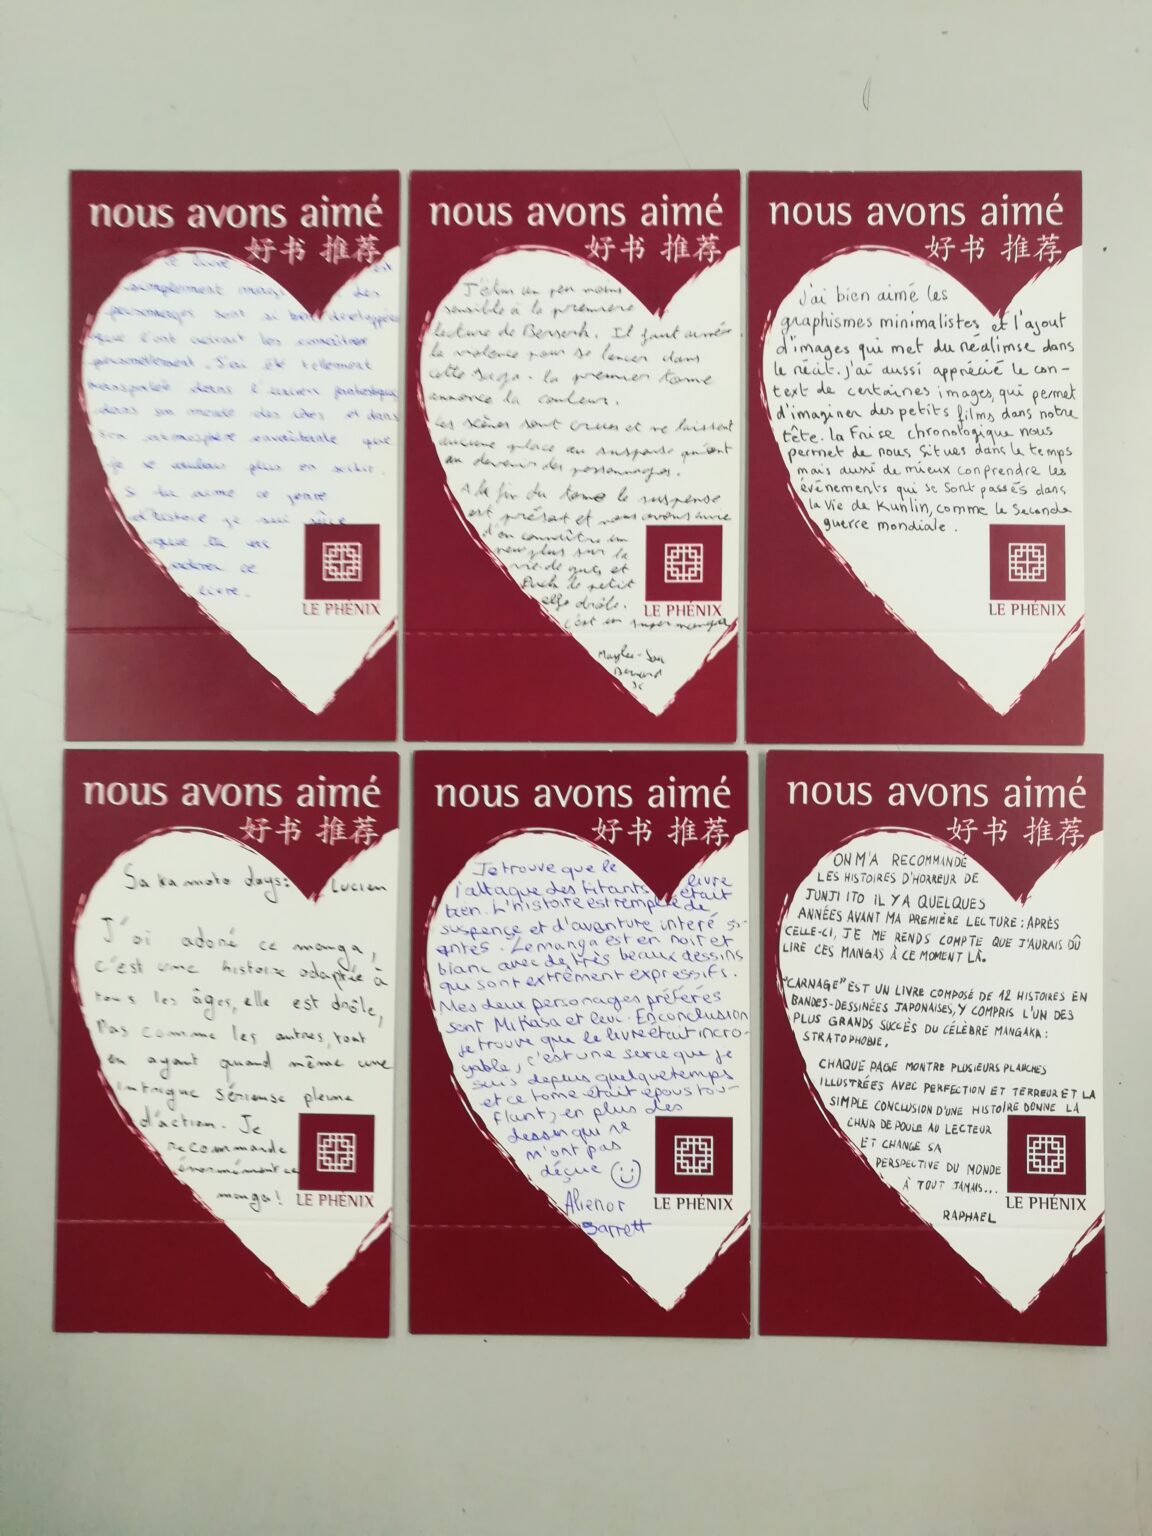 nous avons aimé
好书 推荐
Ce livre est
simplement magi des
personnages sont si bien développés
que l'ont
personellement. J'ai été tellement
transportée dans l'univers fantastique
dans son monde des et dans
son atmosphère envoûtante que
je ne voulais plus en sortir.
Si tu aime ce genre
d'histoire je suis sûre
que tu vas
adorer ce
livre.
LE PHÉNIX
nous avons aimé
好书 推荐
J'étais un peu moins
sensible à la première
lecture de Berserk. Il faut aimer
la violence pour se lancer dans
cette saga. la premier tome
annonce la couleur.
Les scènes sont crues et ne laissent
aucune place au suspense quant
au devenir des personnages.
A la fin du tome le suspense
est présent et nous avons envie
d'en connaître un
peu plus sur la
vie de guts et
Puck le petit
elfe drôle.
c'est un super manga
LE PHÉNIX
nous avons aimé
好书 推荐
J'ai bien aimé les
graphismes minimalistes et l'ajout
d'images qui met du réalimse dans
le récit. j'ai aussi apprécié le con-
text de certaines images, qui permet
d'imaginer des petits films dans notre
tête. la Frise chronologique nous
permet de nous situes dans le temps
mais aussi de mieux conprendre les
événements qui se sont passés dans
la vie de Kunlin, comme la Seconde
guerre mondiale.
LE PHÉNIX
nous avons aimé
好书 推荐
Sakamoto days: Lucien
J'ai adoré ce manga,
c'est une histoire adaptée à
tous les âges, elle est drôle,
Pas comme les autres, tout
en ayant quand même une
intrigue sérieuse pleine
d'action. Je
recommande
énormément ce
manga!
LE PHÉNIX
nous avons aimé
好书 推荐
Je trouve que le livre
l'attaque des titants était
bien. L'histoire est remplie de
suspence et d'avanture interé ss-
antes. Le manga est en noir et
blanc avec de très beaux dessins
qui sont extrêment expressifs.
Mes deux personages préférés
sont Mikasa et levi. En conclusion
je trouve que le livre était incro-
yable, c'est une serie que je
suis depuis quelque temps
et ce tome était époustou-
flant, en plus des
dessin qui ne
m'ont pas
déçue
Alienor
Barrett
LE PHÉNIX
nous avons aimé
好书 推荐
ON M'A RECOMMANDÉ
LES HISTOIRES D'HORREUR DE
JUNJI ITO IL Y A QUELQUES
ANNÉES AVANT MA PREMIÈRE LECTURE: APRÈS
CELLE-CI, JE ME RENDS COMPTE QUE J'AURAIS DÛ
LIRE CES MANGAS À CE MOMENT LÀ.
"CARNAGE" EST UN LIVRE COMPOSÉ DE 12 HISTOIRES EN
BANDES-DESSINÉES JAPONAISES, Y COMPRIS L'UN DES
PLUS GRANDS SUCCÈS DU CÉLÈBRE MANGAKA:
STRATOPHOBIE.
CHAQUE PAGE MONTRE PLUSIEURS PLANCHES
ILLUSTRÉES AVEC PERFECTION ET TERREUR ET LA
SIMPLE CONCLUSION D'UNE HISTOIRE DONNE LA
CHAIR DE POULE AU LECTEUR
ET CHANGE SA
PERSPECTIVE DU MONDE
À TOUT JAMAIS...
RAPHAEL
LE PHÉNIX